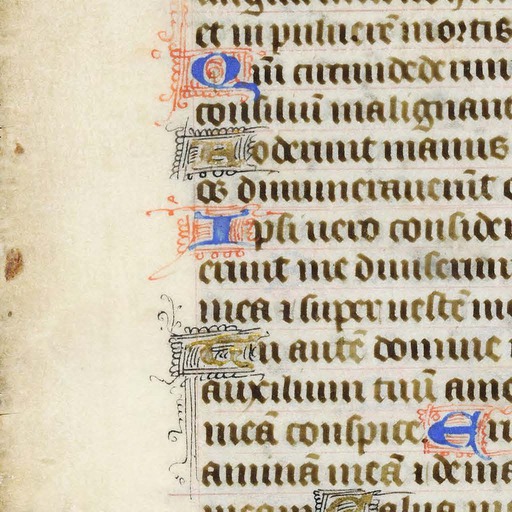 et in puluerē mortis
Qm̄ circumdederun
consiliū malignant
Foderunt manus
os̄ dinumerauerūt o
Ipsi uero consider
erunt me diuiserun
mea ⁊ super uestē m
Tu autē domine
auxilium tuū a me
meā conspice. Eru
animā meā ⁊ de ma
meam Salua m